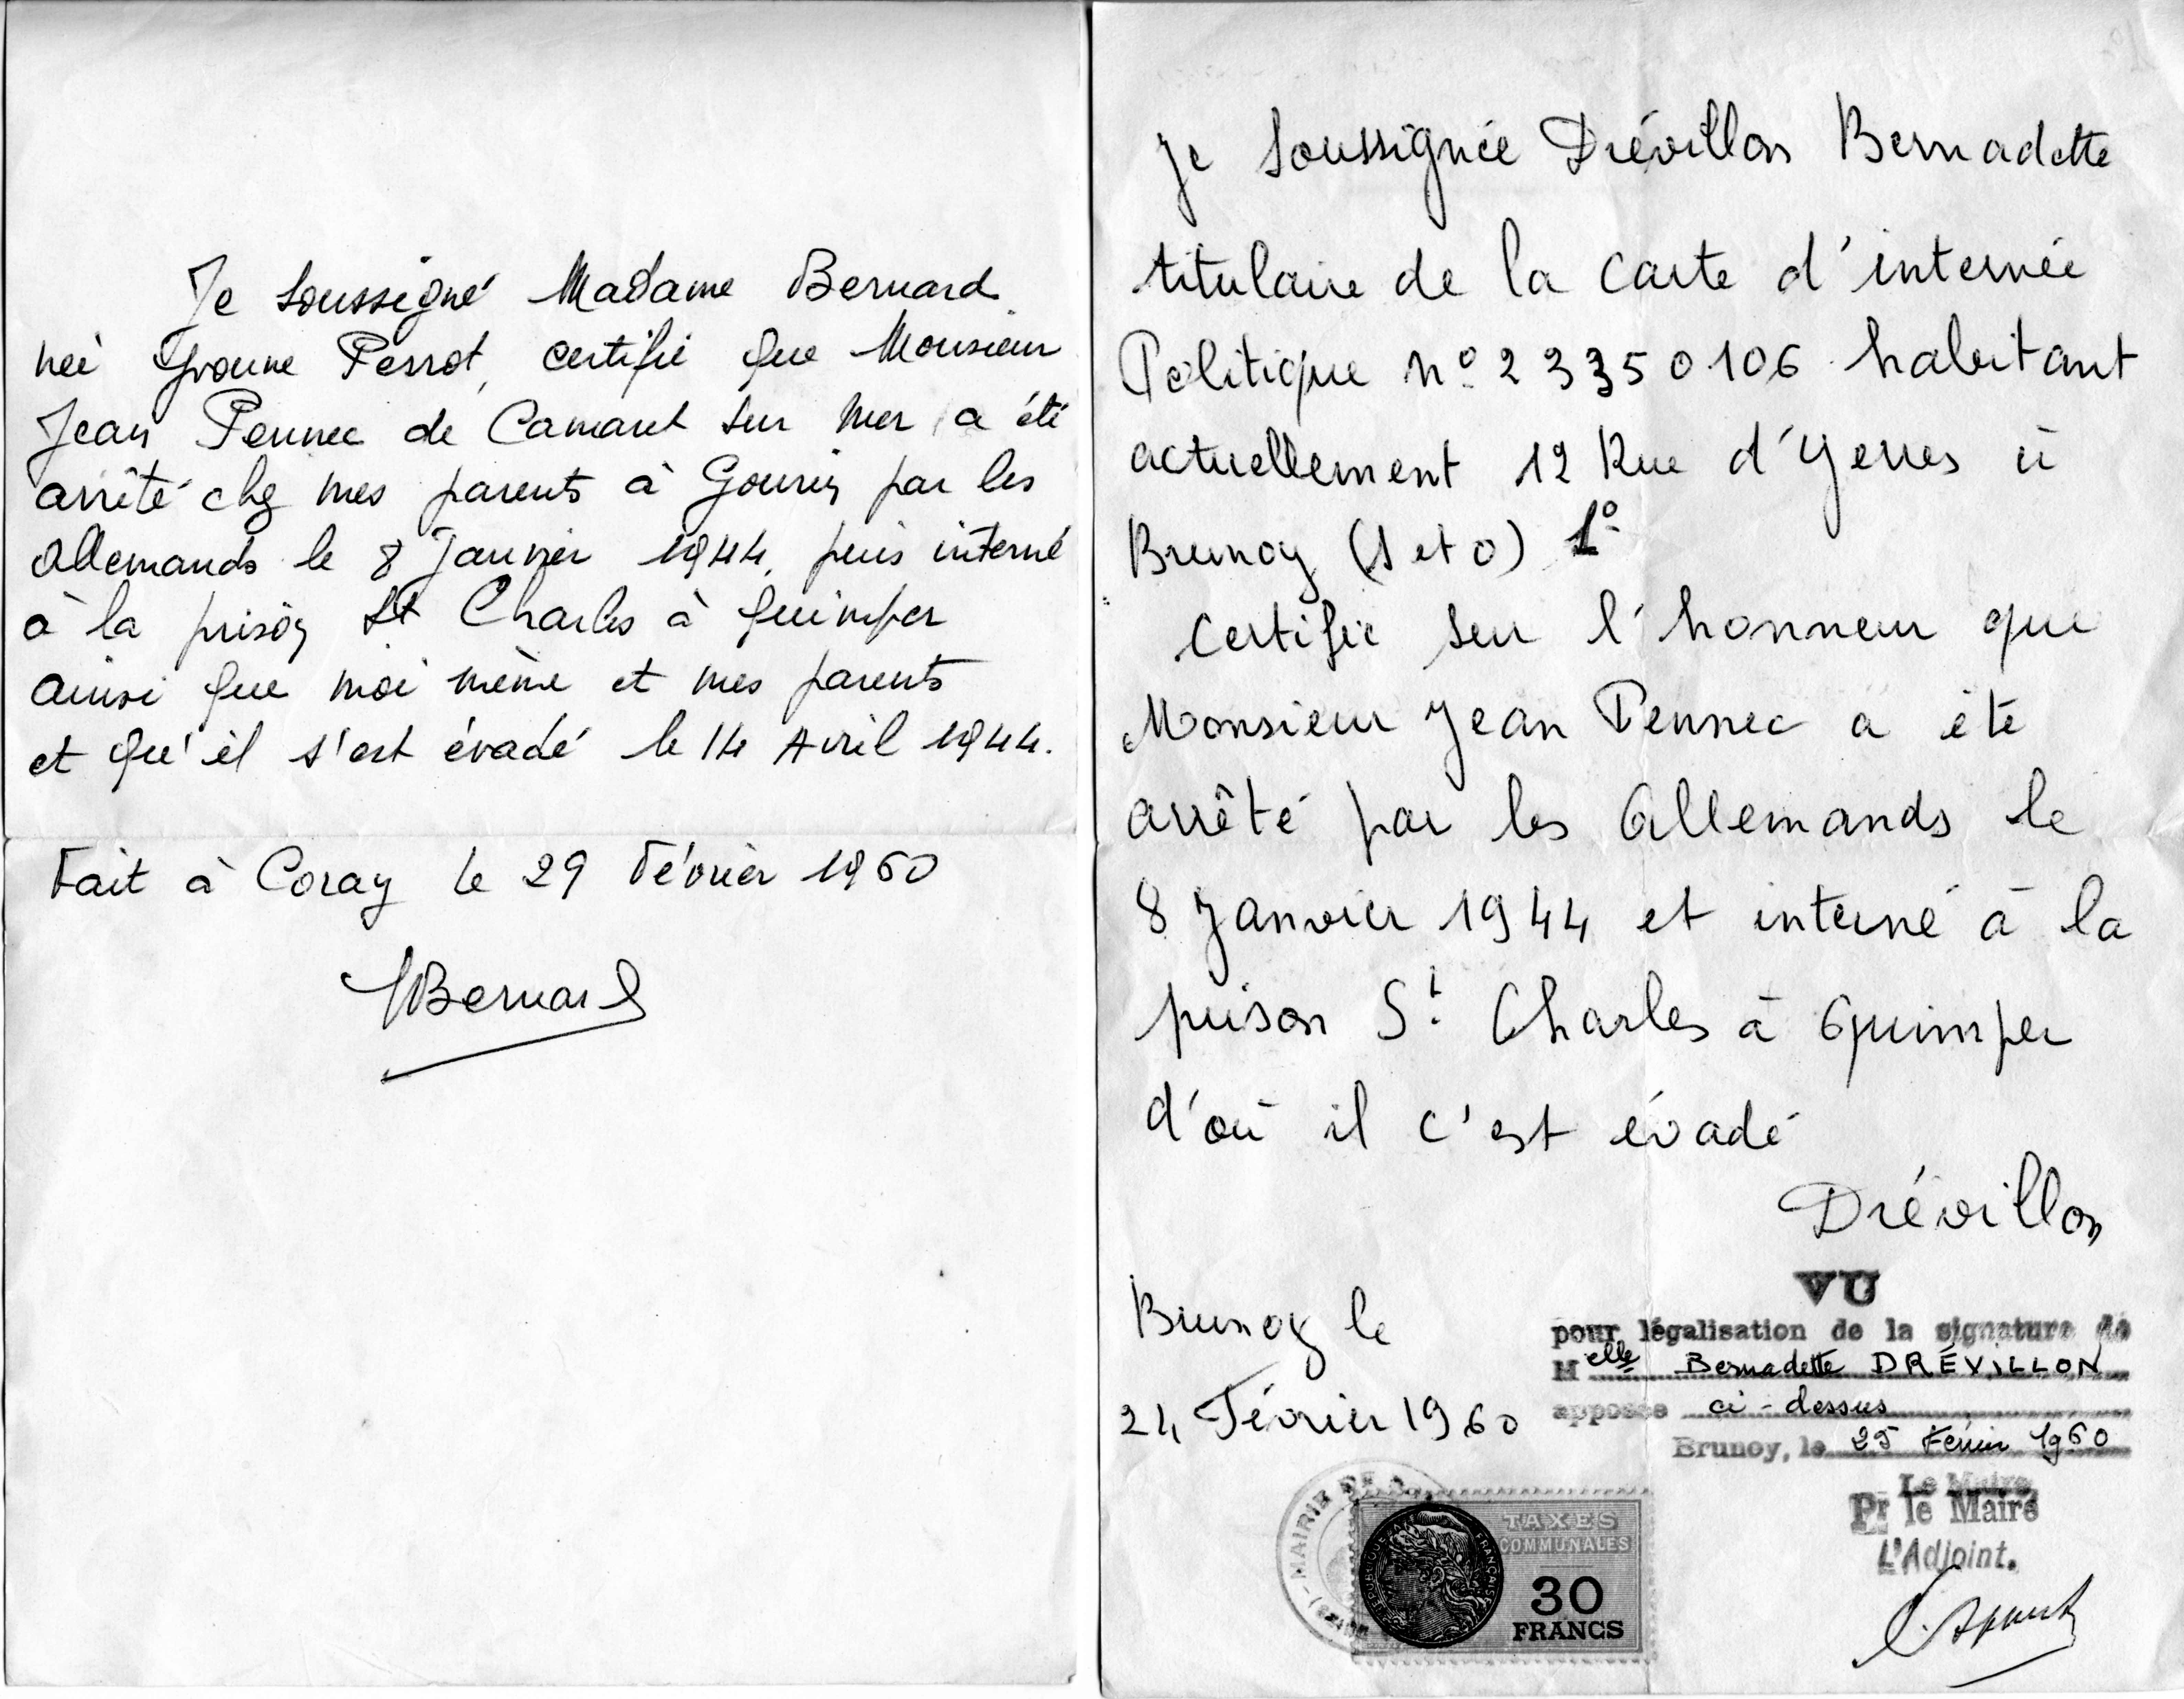 Je soussigné Madame Bernard
neé Yvonne Perrot, certifie que Monsieur
Jean Pennec de Camaret sur mer, a été
arrêté chez mes parents à Gourin par les
Allemands le 8 Janvier 1944, puis interné
à la prison St Charles à Quimper
ainsi que moi même et mes parents
et qu'il s'est évadé le 14 Avril 1944.
Fait à Coray le 29 Février 1960
YBernard
Je soussignée Drévillon Bernadette
titulaire de la carte d'internée
Politique n° 2 3350106 habitant
actuellement 12 Rue d'Yerres à
Brunoy (S et O) 1°
Certifie sur l'honneur que
Monsieur Jean Pennec a été
arrêté par les Allemands le
8 Janvier 1944 et interné à la
prison St Charles à Quimper
d'où il c'est évadé
Drévillon
Brunoy le
24 Février 1960
VU
pour légalisation de la signature de
Melle Bernadette DRÉVILLON
apposée ci-dessus
Brunoy, le 25 Février 1960
Le Maire,
Pr le Maire
L'Adjoint.
MAIRIE DE
REPUBLIQUE FRANÇAISE
TAXES
COMMUNALES
30
FRANCS